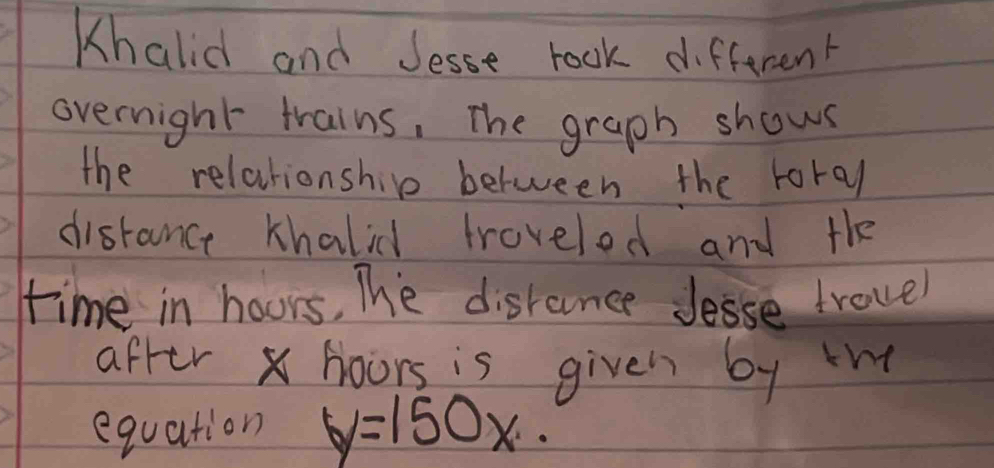 Khalid and Jesse took different
overnight trains. The graph shows
the relationship between the total
distance Khalid traveled and the
time in hours. The distance Jesse travel
after x hours is given by the
equation y=150x.